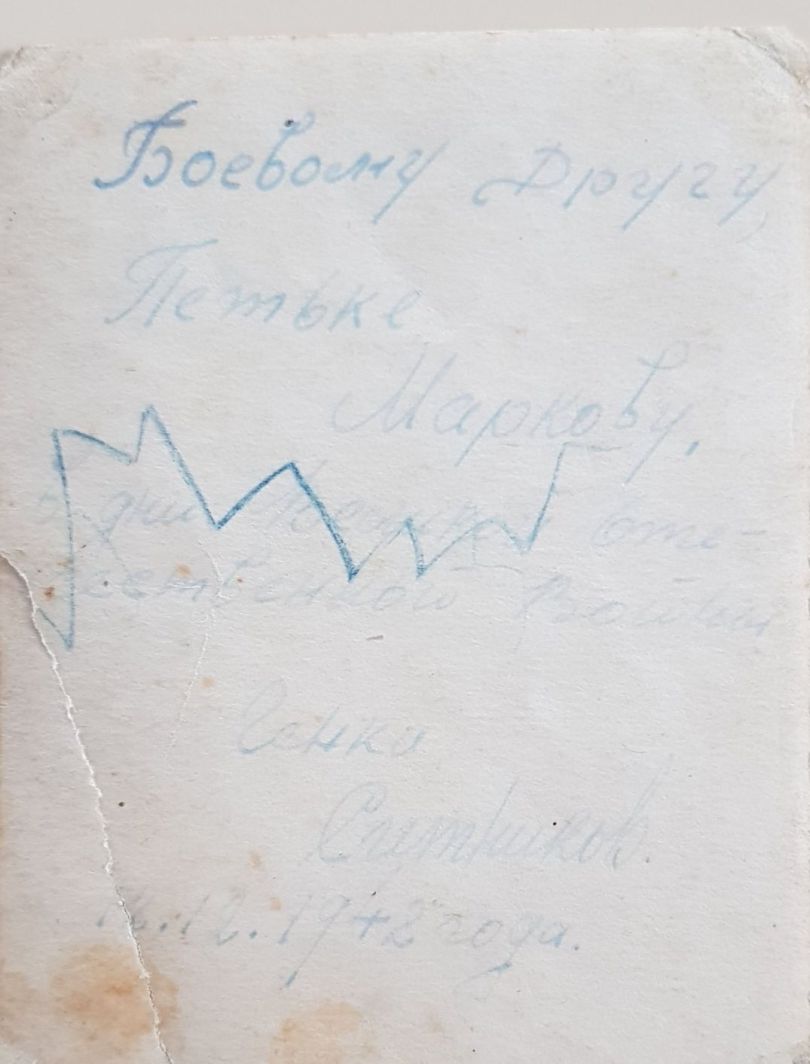 Боевому Другу,
Петьке
Маркову.
В дни Великой Оте-
чественной Войны
Сенка
Спутников.
12.1942 года.